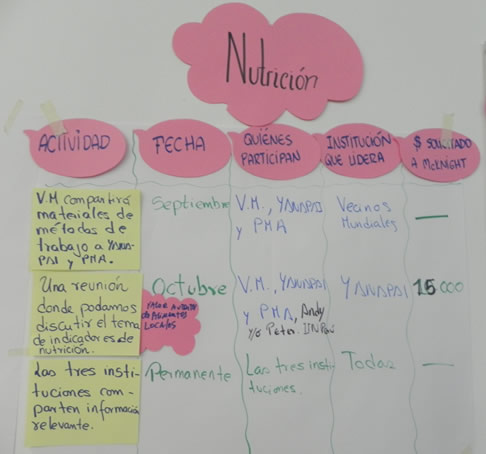 Nutrición
ACTIVIDAD
FECHA
QUIÉNES
PARTICIPAN
INSTITUCIÓN
QUE LIDERA
$ SOLICITADO
A McKNIGHT
V.M compartirá
materiales de
métodos de
trabajo a YANA-
PAI y PMA.
Septiembre
V.M., YANAPAI
y PMA
Vecinos
Mundiales
—
Una reunión
donde podamos
discutir el tema
de indicadores de
nutrición.
Octubre
DE ALIMENTOS
LOCALES
V.M., YANAPAI
y PMA, Andy
y/o Peter. IIN Perú
YANAPAI
15000
Las tres insti-
tuciones com-
parten información
relevante.
Permanente
Las tres insti-
tuciones.
Todas
—